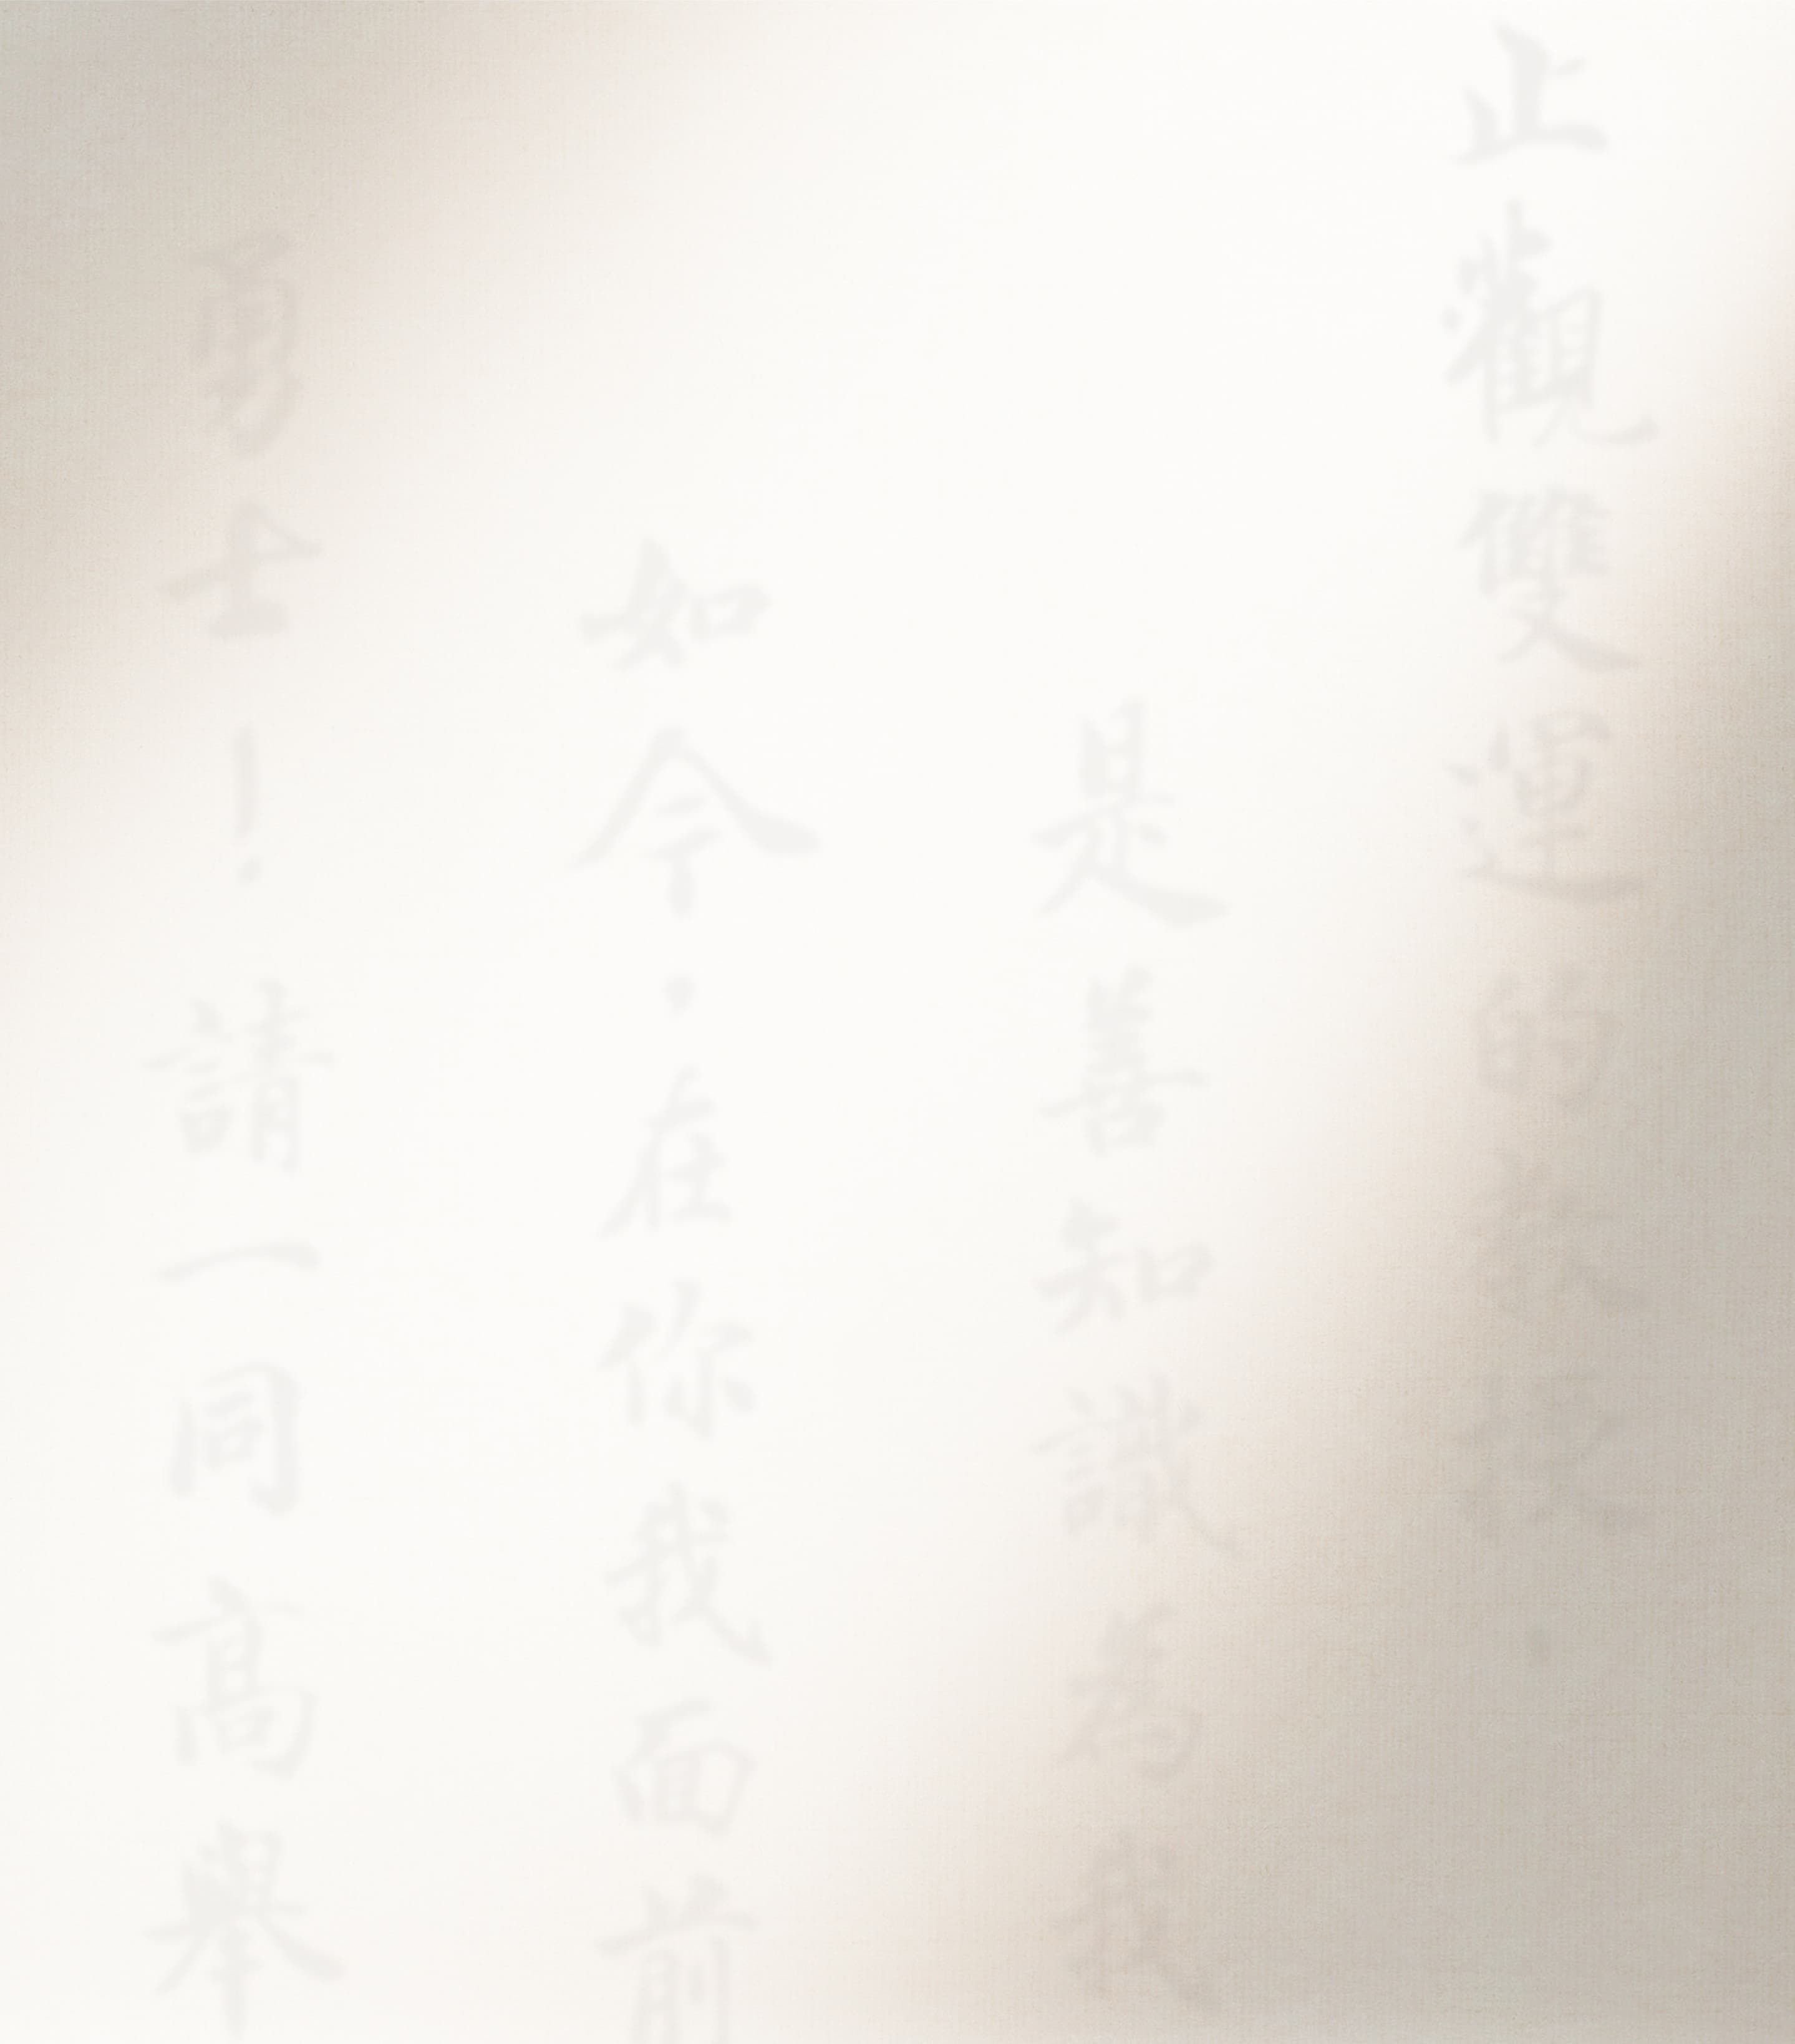 止觀雙運的教授。
是善知識為我
如今，在你我面前
勇士！請一同高舉